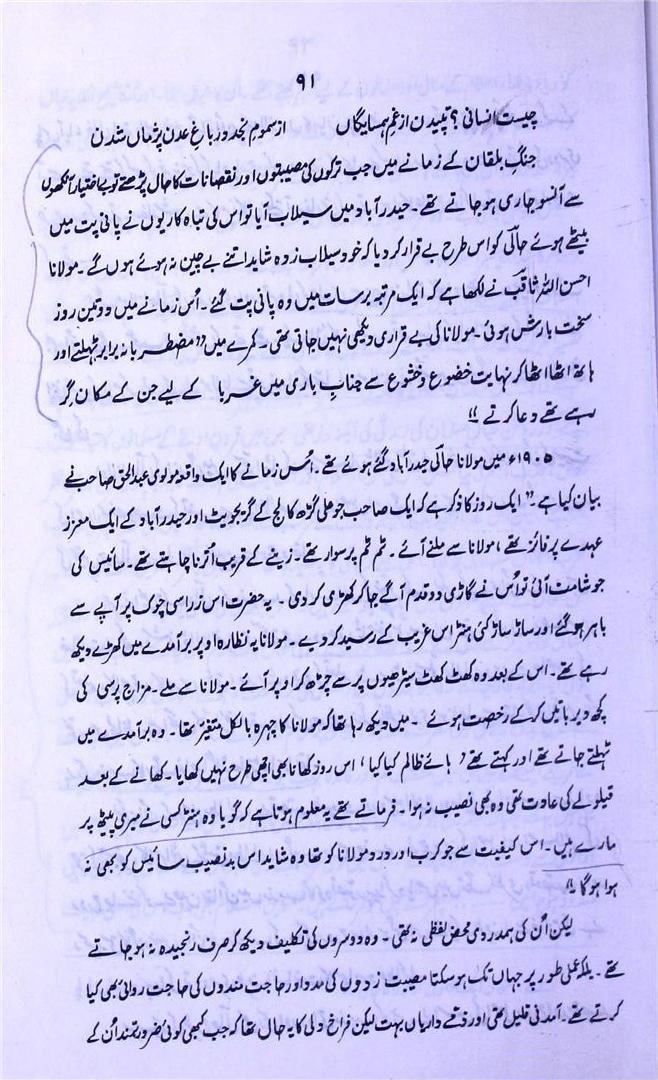 ۹۱
چیست انسانی؟ تپیدن از غم ہمسایگاں از سموم نجد در باغ عدن پژماں شدن
جنگِ بلقان کے زمانے میں جب ترکوں کی مصیبتوں اور نقصانات کا حال پڑھتے تو بے اختیار آنکھوں
سے آنسو جاری ہو جاتے تھے۔ حیدر آباد میں سیلاب آیا تو اس کی تباہ کاریوں نے پانی پت میں
بیٹھے ہوئے حالیؔ کو اس طرح بے قرار کر دیا کہ خود سیلاب زدہ شاید اتنے بے چین نہ ہوئے ہوں گے۔ مولانا
احسن اللہ ثاقبؔ نے لکھا ہے کہ ایک مرتبہ برسات میں وہ پانی پت گئے۔ اُس زمانے میں دو تین روز
سخت بارش ہوئی۔ مولانا کی بے قراری دیکھی نہیں جاتی تھی۔ کمرے میں ”مضطربانہ برابر ٹہلتے اور
ہاتھ اٹھا اٹھا کر نہایت خضوع و خشوع سے جناب باری میں غربا کے لیے جن کے مکان گر
رہے تھے دعا کرتے“
۱۹۰۵ء میں مولانا حالیؔ حیدر آباد گئے ہوئے تھے۔ اُس زمانے کا ایک واقعہ مولوی عبدالحق صاحب نے
بیان کیا ہے۔ ”ایک روز کا ذکر ہے کہ ایک صاحب جو علی گڑھ کالج کے گریجویٹ اور حیدر آباد کے ایک معزز
عہدے پر فائز تھے، مولانا سے ملنے آئے۔ ٹم ٹم پر سوار تھے۔ زینے کے قریب اُترنا چاہتے تھے۔ سائیس کی
جو شامت آئی تو اُس نے گاڑی دو قدم آگے جا کر کھڑی کر دی۔ یہ حضرت اس ذرا سی چوک پر آپے سے
باہر ہو گئے اور ساڑ ساڑ کئی ہنٹر اس غریب کے رسید کر دیے۔ مولانا یہ نظارہ اوپر برآمدے میں کھڑے دیکھ
رہے تھے۔ اس کے بعد وہ کھٹ کھٹ سیڑھیوں پر سے چڑھ کر اوپر آئے۔ مولانا سے ملے۔ مزاج پرسی کی
کچھ دیر باتیں کر کے رخصت ہوئے۔ میں دیکھ رہا تھا کہ مولانا کا چہرہ بالکل متغیر تھا۔ وہ برآمدے میں
ٹہلتے جاتے تھے اور کہتے تھے ’ہائے ظالم کیا کیا‘، اس روز کھانا بھی اچھی طرح نہیں کھایا۔ کھانے کے بعد
قیلولے کی عادت تھی وہ بھی نصیب نہ ہوا۔ فرماتے تھے یہ معلوم ہوتا ہے کہ گویا وہ ہنٹر کسی نے میری پیٹھ پر
مارے ہیں۔ اس کیفیت سے جو کرب اور درد مولانا کو تھا وہ شاید اس بدنصیب سائیس کو بھی نہ
ہوا ہوگا“
لیکن اُن کی ہمدردی محض لفظی نہ تھی۔ وہ دوسروں کی تکلیف دیکھ کر صرف رنجیدہ نہ ہو جاتے
تھے۔ بلکہ عملی طور پر جہاں تک ہو سکتا مصیبت زدوں کی مدد اور حاجت مندوں کی حاجت روائی بھی کیا
کرتے تھے۔ آمدنی قلیل تھی اور ذمے داریاں بہت لیکن فراخ دلی کا یہ حال تھا کہ جب کبھی کوئی ضرورتمند اُن کے